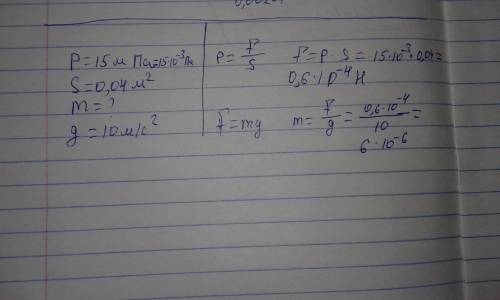 P=15 м Па=15·10⁻³Па
S=0,04 м²
m=?
g=10м/с²
P=F/S F=P S=15·10⁻³·0,04=
0,6·10⁻⁴ Н
F=mg m=F/g=0,6·10⁻⁴/10=
6·10⁻⁶